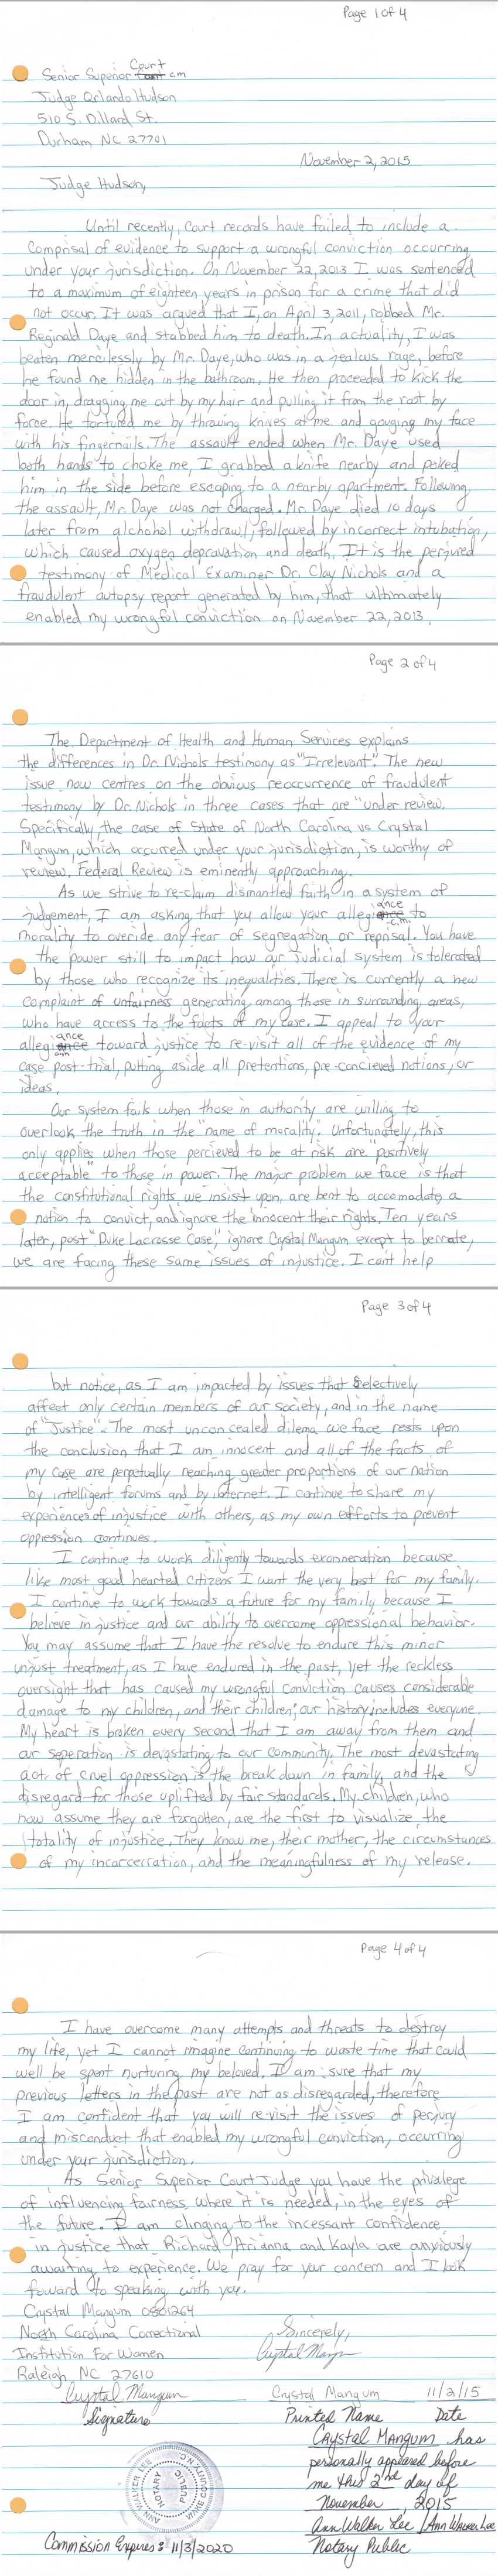 Page 1 of 4
Senior Superior Court c.m
Judge Orlando Hudson
510 S. Dillard St.
Durham NC 27701
November 2, 2015
Judge Hudson,
Until recently, Court records have failed to include a
Comprisal of evidence to support a wrongful conviction occurring
under your jurisdiction. On November 22, 2013 I was sentenced
to a maximum of eighteen years in prison for a crime that did
not occur. It was argued that I, on April 3, 2011, robbed Mr.
Reginald Daye and stabbed him to death. In actuality, I was
beaten mercilessly by Mr. Daye, who was in a jealous rage, before
he found me hidden in the bathroom. He then proceeded to kick the
door in, dragging me out by my hair and pulling it from the root by
force. He tortured me by throwing knives at me and gouging my face
with his fingernails. The assault ended when Mr. Daye used
both hands to choke me, I grabbed a knife nearby and poked
him in the side before escaping to a nearby apartment. Following
the assault, Mr. Daye was not charged. Mr. Daye died 10 days
later from alchohol withdrawl, followed by incorrect intubation,
which caused oxygen depravation and death. It is the perjured
testimony of Medical Examiner Dr. Clay Nichols and a
fraudulent autopsy report generated by him, that ultimately
enabled my wrongful conviction on November 22, 2013.
Page 2 of 4
The Department of Health and Human Services explains
the differences in Dr. Nichols testimony as "Irrelevant". The new
issue now centres on the obvious reoccurrence of fraudulent
testimony by Dr. Nichols in three cases that are "under review.
Specifically, the case of State of North Carolina vs Crystal
Mangum, which occurred under your jurisdiction, is worthy of
review. Federal Review is eminently approaching.
As we strive to re-claim dismantled faith in a system of
judgement, I am asking that you allow your allegiance c.m. to
morality to overide any fear of segregation or reprisal. You have
the power still to impact how our Judicial system is tolerated
by those who recognize its inequalities. There is currently a new
complaint of unfairness generating among those in surrounding areas,
who have access to the facts of my case. I appeal to your
allegiance c.m toward justice to re-visit all of the evidence of my
case post-trial, putting aside all pretentions, pre-concieved notions, or
ideas.
Our system fails when those in authority are willing to
overlook the truth in the "name of morality". Unfortunately, this
only applies when those percieved to be at risk are "positively
acceptable" to those in power. The major problem we face is that
the constitutional rights we insist upon, are bent to accomadate a
notion to convict, and ignore the innocent their rights. Ten years
later, post "Duke Lacrosse Case," ignore Crystal Mangum except to berrate,
we are facing these same issues of injustice. I can't help
Page 3 of 4
but notice, as I am impacted by issues that selectively
affect only certain members of our society, and in the name
of "Justice". The most unconcealed dilema we face rests upon
the conclusion that I am innocent and all of the facts of
my case are perpetually reaching greater proportions of our nation
by intelligent forums and by internet. I continue to share my
experiences of injustice with others, as my own efforts to prevent
oppression continues.
I continue to work diligently towards exonneration because
like most good hearted citizens I want the very best for my family.
I continue to work towards a future for my family because I
believe in justice and our ability to overcome oppressional behavior.
You may assume that I have the resolve to endure this minor
unjust treatment, as I have endured in the past, yet the reckless
oversight that has caused my wrongful conviction causes considerable
damage to my children, and their children; our history, includes everyone.
My heart is broken every second that I am away from them and
our seperation is devastating to our community. The most devastating
act of cruel oppression is the break down in family, and the
disregard for those uplifted by fair standards. My children, who
now assume they are forgotten, are the first to visualize the
totality of injustice. They know me, their mother, the circumstances
of my incarcerration, and the meaningfulness of my release.
Page 4 of 4
I have overcome many attempts and threats to destroy
my life, yet I cannot imagine continuing to waste time that could
well be spent nurturing my beloved. I am sure that my
previous letters in the past are not as disregarded, therefore
I am confident that you will re-visit the issues of perjury
and misconduct that enabled my wrongful conviction, occurring
under your jurisdiction.
As Senior Superior Court Judge you have the privalege
of influencing fairness, where it is needed, in the eyes of
the future. I am clinging to the incessant confidence
in justice that Richard, Arianna and Kayla are anxiously
awaiting to experience. We pray for your concern and I look
foward to speaking with you.
Crystal Mangum 0801264
North Carolina Correctional
Institution For Women
Raleigh NC 27610
Sincerely,
Crystal Mangum
Crystal Mangum Crystal Mangum 11/2/15
Signature Printed Name Date
Crystal Mangum has
personally appeared before
me this 2nd day of
November 2015
Ann Walker Lee / Ann Walker Lee
Notary Public
ANN WALKER LEE
NOTARY PUBLIC
WAKE COUNTY NC
Commission Expires: 11/3/2020